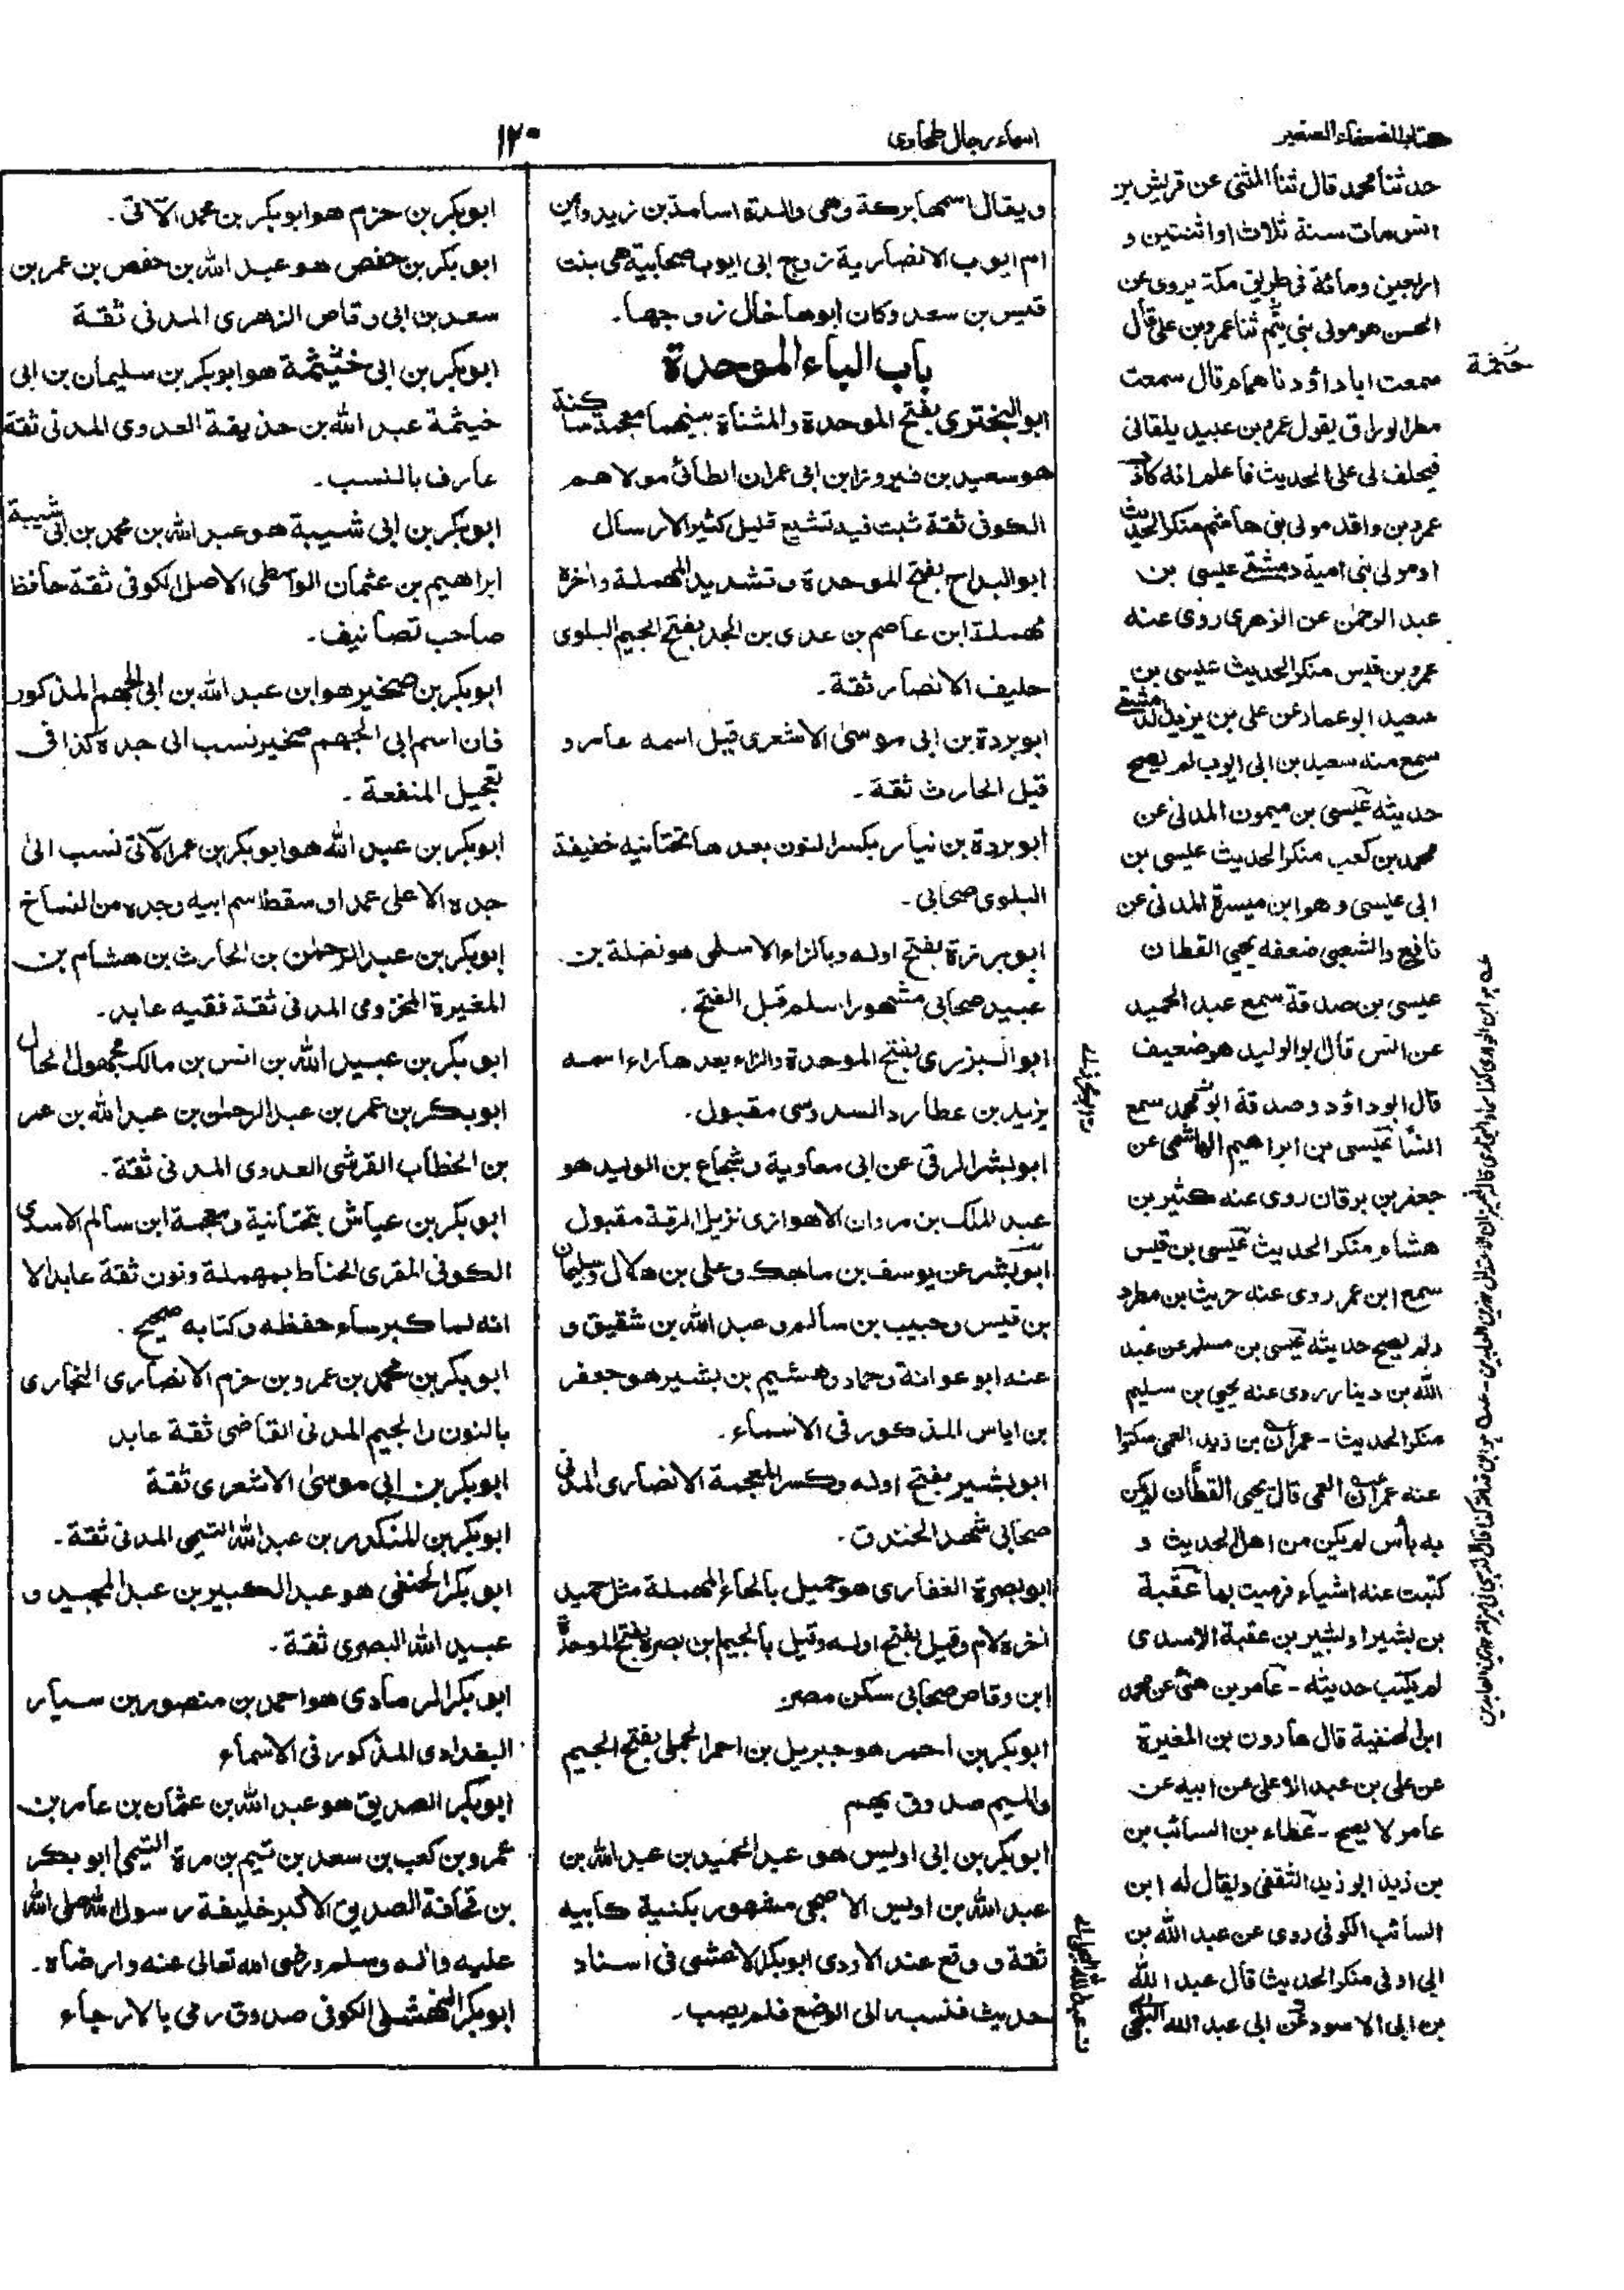 كتاب الضعفاء الصغير
اسماء رجال طحاوى
١٢٠
حدثنا محمد قال ثنا المثنى عن قريش بن
انس مات سنة ثلاث او اثنتين و
اربعين ومائة فى طريق مكة يروى عن
الحسن هو مولى بنى تيم ثنا عمرو بن على قال
سمعت ابا داؤد نا همام قال سمعت
مطر الوراق يقول عمرو بن عبيد يلقانى
فيحلف لى على الحديث فاعلم انه كاذب
عمرو بن واقد مولى بنى هاشم منكر الحديث
او مولى بنى امية دمشقى عيسى بن
عبد الرحمٰن عن الزهرى روى عنه
عمرو بن قيس منكر الحديث عيسى بن
سعيد ابو عماد عن على بن يزيد الدمشقى
سمع منه سعيد بن ابى ايوب لم يصح
حديثه عيسى بن ميمون المدنى عن
محمد بن كعب منكر الحديث عيسى بن
ابى عيسى وهو ابن ميسرة المدنى عن
نافع والشعبى ضعفه يحيى القطان
عيسى بن صدقة سمع عبد الحميد
عن انس قال ابو الوليد هو ضعيف
قال ابو داؤد وصدقة ابو محمد سمع
انسا عيسى بن ابراهيم الهاشمى عن
جعفر بن برقان روى عنه كثير بن
هشام منكر الحديث عيسى بن قيس
سمع ابن عمر روى عنه حريث بن مطرد
ولم يصح حديثه عيسى بن مسلم عن عبد
الله بن دينار روى عنه يحيى بن سليم
منكر الحديث ـ عمران بن زيد العمى سكتوا
عنه عمران العمى قال يحيى القطان لم يكن
به بأس لم يكن من اهل الحديث و
كتبت عنه اشياء فرميت بها عقبة
بن بشير او بشير بن عقبة الاسدى
لم يكتب حديثه ـ عامر بن هنى عن محمد
ابن الحنفية قال هارون بن المغيرة
عن على بن عبد الاعلى عن ابيه عن
عامر لا يصح ـ عطاء بن السائب بن
بن زيد ابو زيد الثقفى ويقال له ابن
السائب الكوفى روى عن عبد الله بن
ابى اوفى منكر الحديث قال عبد الله
بن ابى الاسود عن ابى عبد الله البكى
خثمة
ويقال اسمها بركة وهى والدة اسامة بن زيد وايمن
ام ايوب الانصارية زوج ابى ايوب صحابية هى بنت
قيس بن سعد وكان ابوها خال زوجها ـ
باب الباء الموحدة
ابو البخترى بفتح الموحدة والمثناة بينهما معجمة ساكنة
هو سعيد بن فيروز ابن ابى عمران الطائى مولاهم
الكوفى ثقة ثبت فيه تشيع قليل كثير الارسال
ابو البداح بفتح الموحدة وتشديد المهملة واخره
مهملة ابن عاصم بن عدى بن الجد بفتح الجيم البلوى
حليف الانصار ثقة ـ
ابو بردة بن ابى موسىٰ الاشعرى قيل اسمه عامر و
قيل الحارث ثقة ـ
ابو بردة بن نيار بكسر النون بعدها تحتانيه خفيفة
البلوى صحابى ـ
ابو برزة بفتح اوله وبالزاء الاسلمى هو نضلة بن
عبيد صحابى مشهور اسلم قبل الفتح ـ
ابو البزرى بفتح الموحدة والزاء بعدها راء اسمه
يزيد بن عطارد السدوسى مقبول ـ
ابو بشر الرقى عن ابى معاوية وشجاع بن الوليد هو
عبد الملك بن مروان الاهوازى نزيل الرقة مقبول
ابو بشر عن يوسف بن ماهك وعلى بن هلال وسليمان
بن قيس وحبيب بن سالم وعبد الله بن شقيق و
عنه ابو عوانة وحماد وهشيم بن بشير هو جعفر
بن اياس المذكور فى الاسماء ـ
ابو بشير بفتح اوله وكسر المعجمة الانصارى المدنى
صحابى شهد الخندق ـ
ابو بصرة الغفارى هو حميل بالحاء المهملة مثل حميد
اخره لام وقيل بفتح اوله وقيل بالجيم ابن بصرة بفتح الموحدة
ابن وقاص صحابى سكن مصر
ابو بكر بن احمر هو جبريل بن احمر الجملى بفتح الجيم
والميم صدوق يهم
ابو بكر بن ابى اويس هو عبد الحميد بن عبد الله بن
عبد الله بن اويس الاصبحى مشهور بكنية كابيه
ثقة ووقع عند الاودى ابو بكر الاعشى فى اسناد
حديث فنسبه الى الوضع فلم يصب ـ
ابو بكر بن حزم هو ابو بكر بن محمد الآتى ـ
ابو بكر بن حفص هو عبد الله بن حفص بن عمر بن
سعد بن ابى وقاص الزهرى المدنى ثقة
ابو بكر بن ابى خيثمة هو ابو بكر بن سليمان بن ابى
خيثمة عبد الله بن حذيفة العدوى المدنى ثقة
عارف بالنسب ـ
ابو بكر بن ابى شيبة هو عبد الله بن محمد بن ابى شيبة
ابراهيم بن عثمان الواسطى الاصل الكوفى ثقة حافظ
صاحب تصانيف ـ
ابو بكر بن صخير هو ابن عبد الله بن ابى الجهم المذكور
فان اسم ابى الجهم صخير نسب الى جده كذا فى
تعجيل المنفعة ـ
ابو بكر بن عبد الله هو ابو بكر بن عمر الآتى نسب الىٰ
جده الاعلى عمدا او سقط اسم ابيه وجده من النساخ
ابو بكر بن عبد الرحمٰن بن الحارث بن هشام بن
المغيرة المخزومى المدنى ثقة فقيه عابد ـ
ابو بكر بن عبيد الله بن انس بن مالك مجهول الحال
ابو بكر بن عمر بن عبد الرحمٰن بن عبد الله بن عمر
بن الخطاب القرشى العدوى المدنى ثقة ـ
ابو بكر بن عياش بتحتانية ومعجمة ابن سالم الاسدى
الكوفى المقرى الحناط بمهملة ونون ثقة عابد الا
انه لما كبر ساء حفظه وكتابه صحيح ـ
ابو بكر بن محمد بن عمرو بن حزم الانصارى النجارى
بالنون والجيم المدنى القاضى ثقة عابد
ابو بكر بن ابى موسىٰ الاشعرى ثقة
ابو بكر بن المنكدر بن عبد الله التيمى المدنى ثقة ـ
ابو بكر الحنفى هو عبد الكبير بن عبد المجيد و
عبيد الله البصرى ثقة ـ
ابو بكر الرمادى هو احمد بن منصور بن سيار
البغدادى المذكور فى الاسماء
ابو بكر الصديق هو عبد الله بن عثمان بن عامر بن
عمرو بن كعب بن سعد بن تيم بن مرة التيمى ابو بكر
بن قحافة الصديق الاكبر خليفة رسول الله صلى الله
عليه واله وسلم ورضى الله تعالى عنه وارضاه ـ
ابو بكر النهشلى الكوفى صدوق رمى بالارجاء